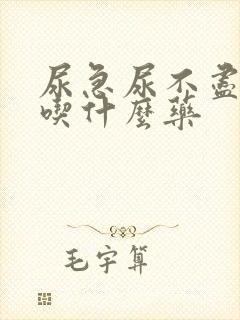 尿急尿不盡
喫什麼藥
毛宇算